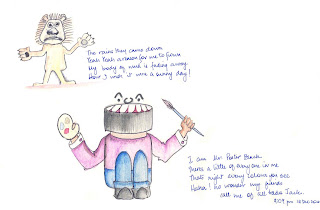 The rains they came down
Yeah Yeah a reason for me to frown
My body of mud is fading away
How I wish it were a sunny day!
I am Mr Paster Bench.
There's a little of everyone in me
That's right every colour you see
Haha! No wonder my friends
call me of all trades Jack.
9:09 pm 15 Dec 2010